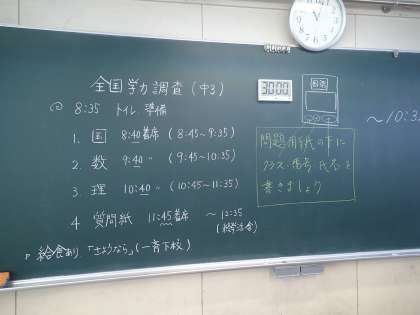 全国学力調査(中3)
8:35 トイレ 準備
1. 国 8:40着席 (8:45~9:35)
2. 数 9:40 〃 (9:45~10:35)
3. 理 10:40 〃 (10:45~11:35)
4 質問紙 11:45着席 ~12:35
給食あり 「さようなら」(一斉下校)
30:00
国語
問題用紙の下に
クラス・番号
書きましょう
~10:3